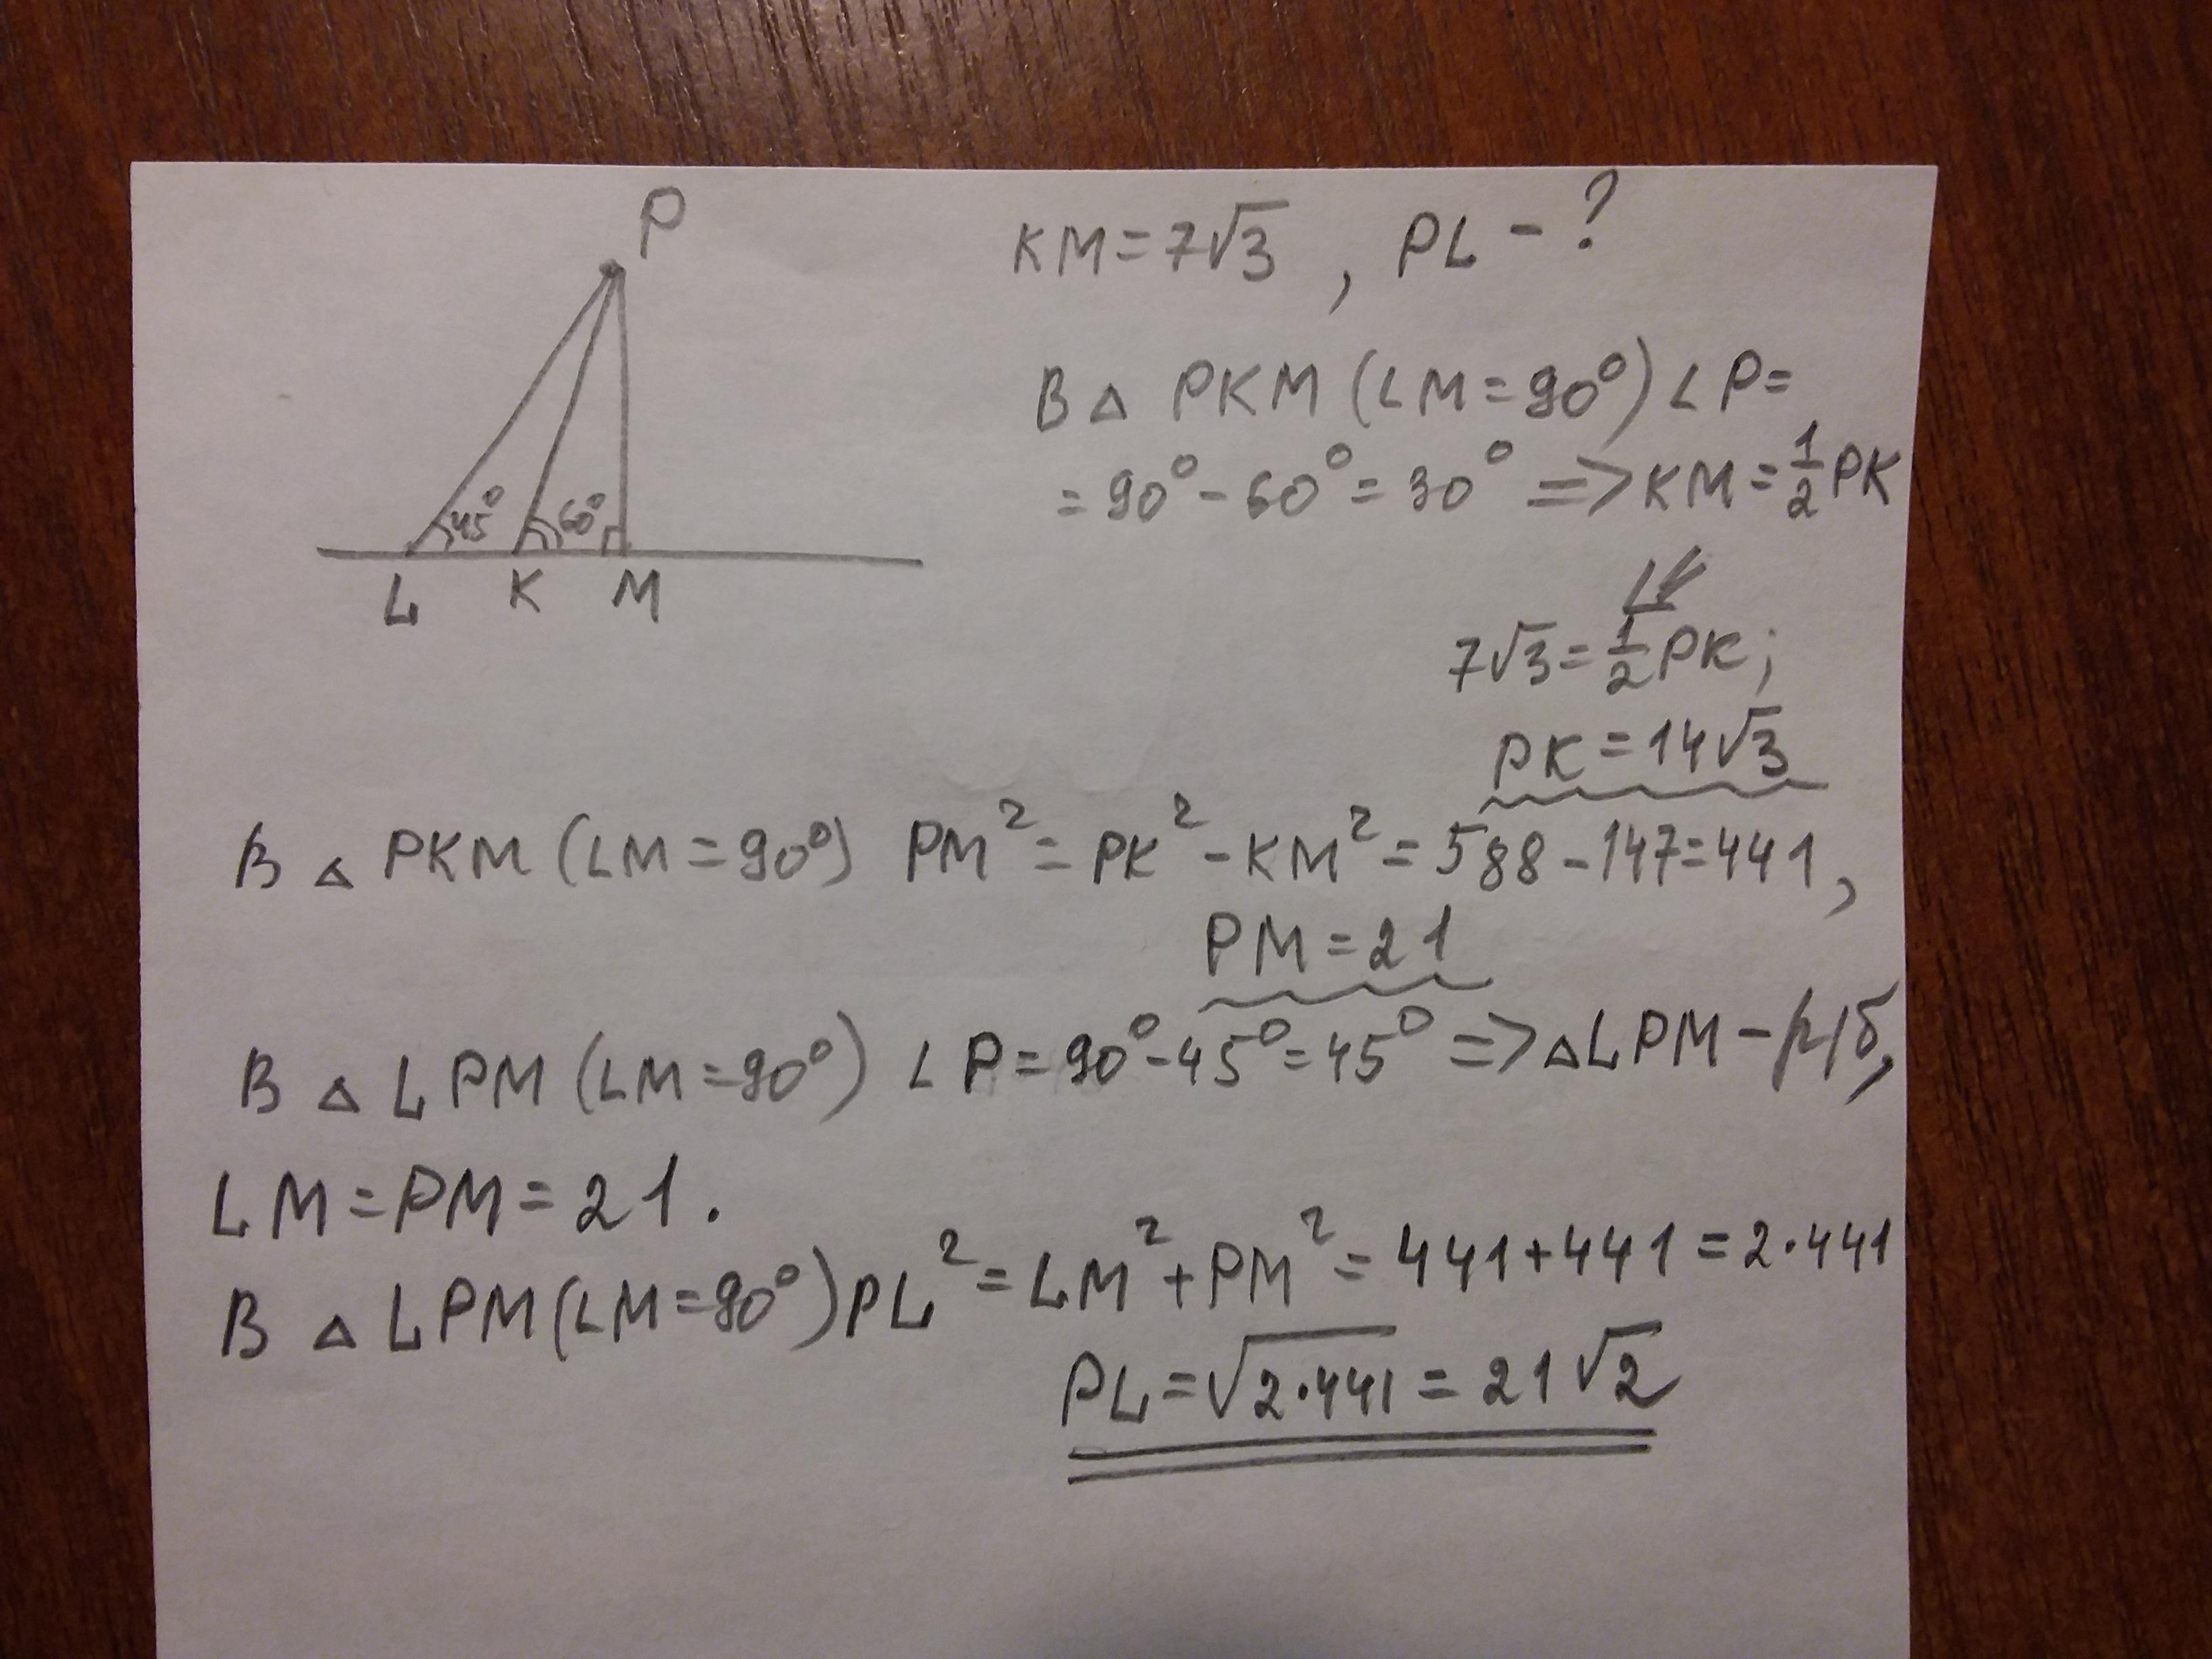 P
45° 60°
L K M
KM = 7√3 , PL - ?
В △ PKM (∠M = 90°) ∠P =
= 90° - 60° = 30° => KM = 1/2 PK
7√3 = 1/2 PK;
PK = 14√3
В △ PKM (∠M = 90°) PM² = PK² - KM² = 588 - 147 = 441,
PM = 21
В △ LPM (∠M = 90°) ∠P = 90° - 45° = 45° => △LPM - р/б,
LM = PM = 21.
В △ LPM (∠M = 90°) PL² = LM² + PM² = 441 + 441 = 2·441
PL = √2·441 = 21√2